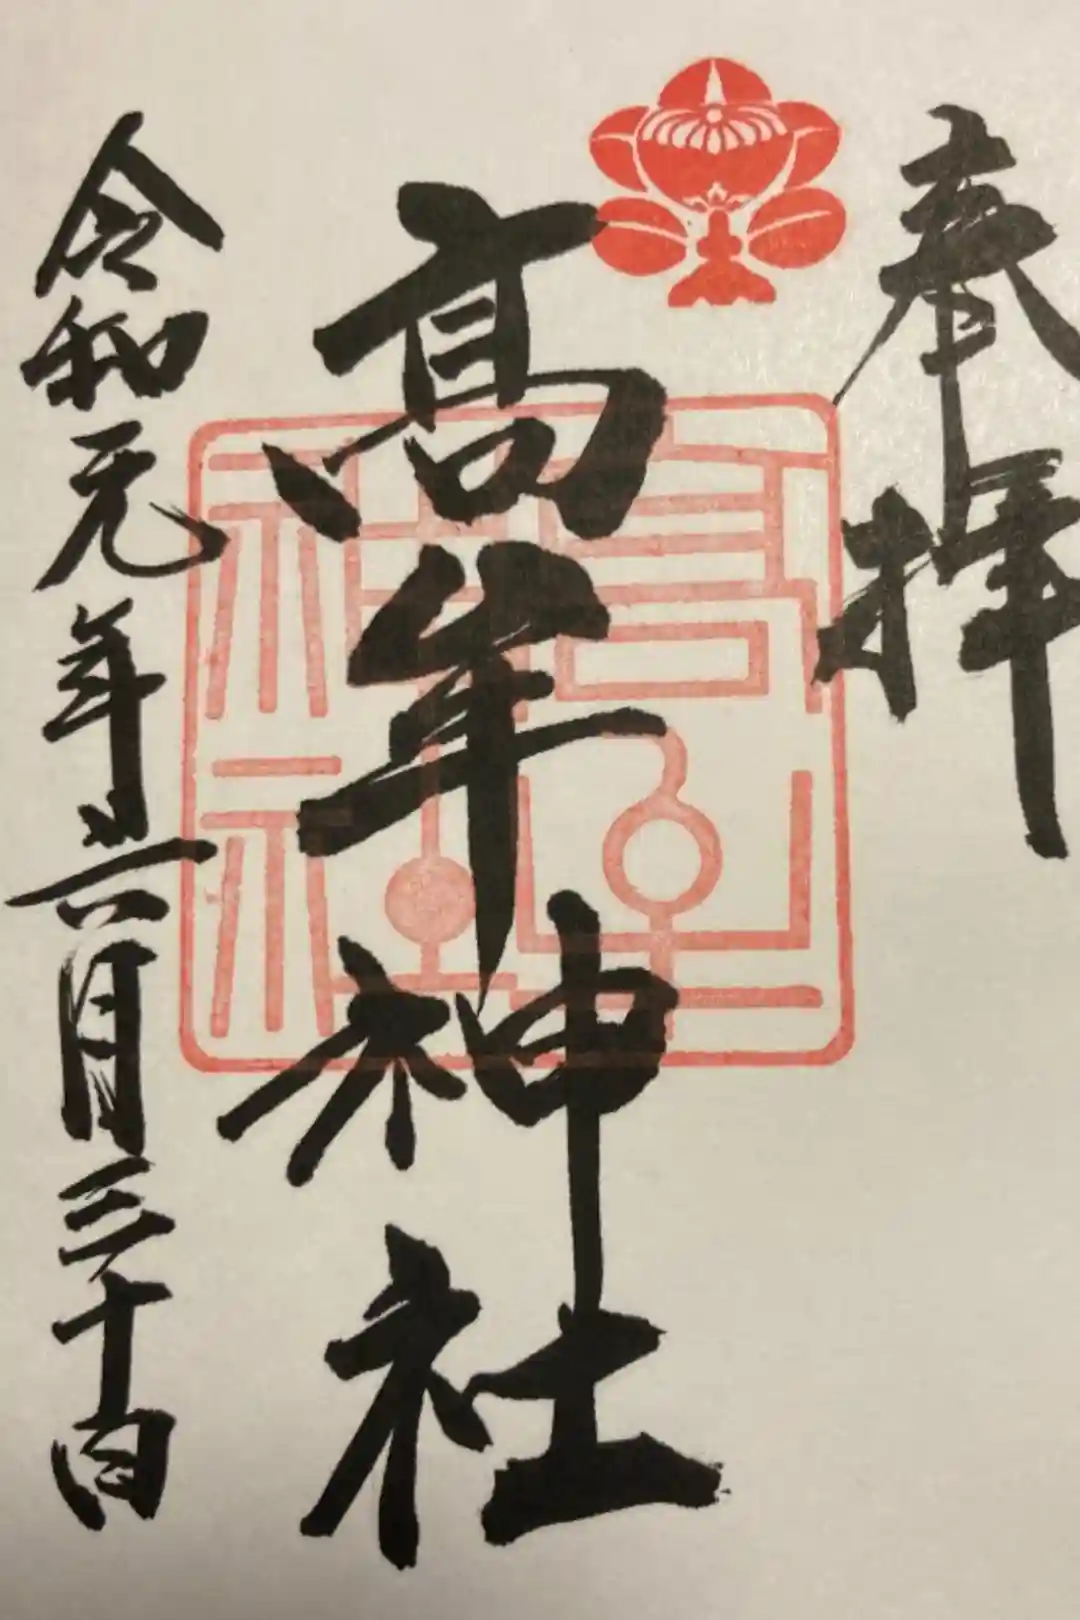 奉拝
髙牟神社
令和元年六月三十日
髙牟神社